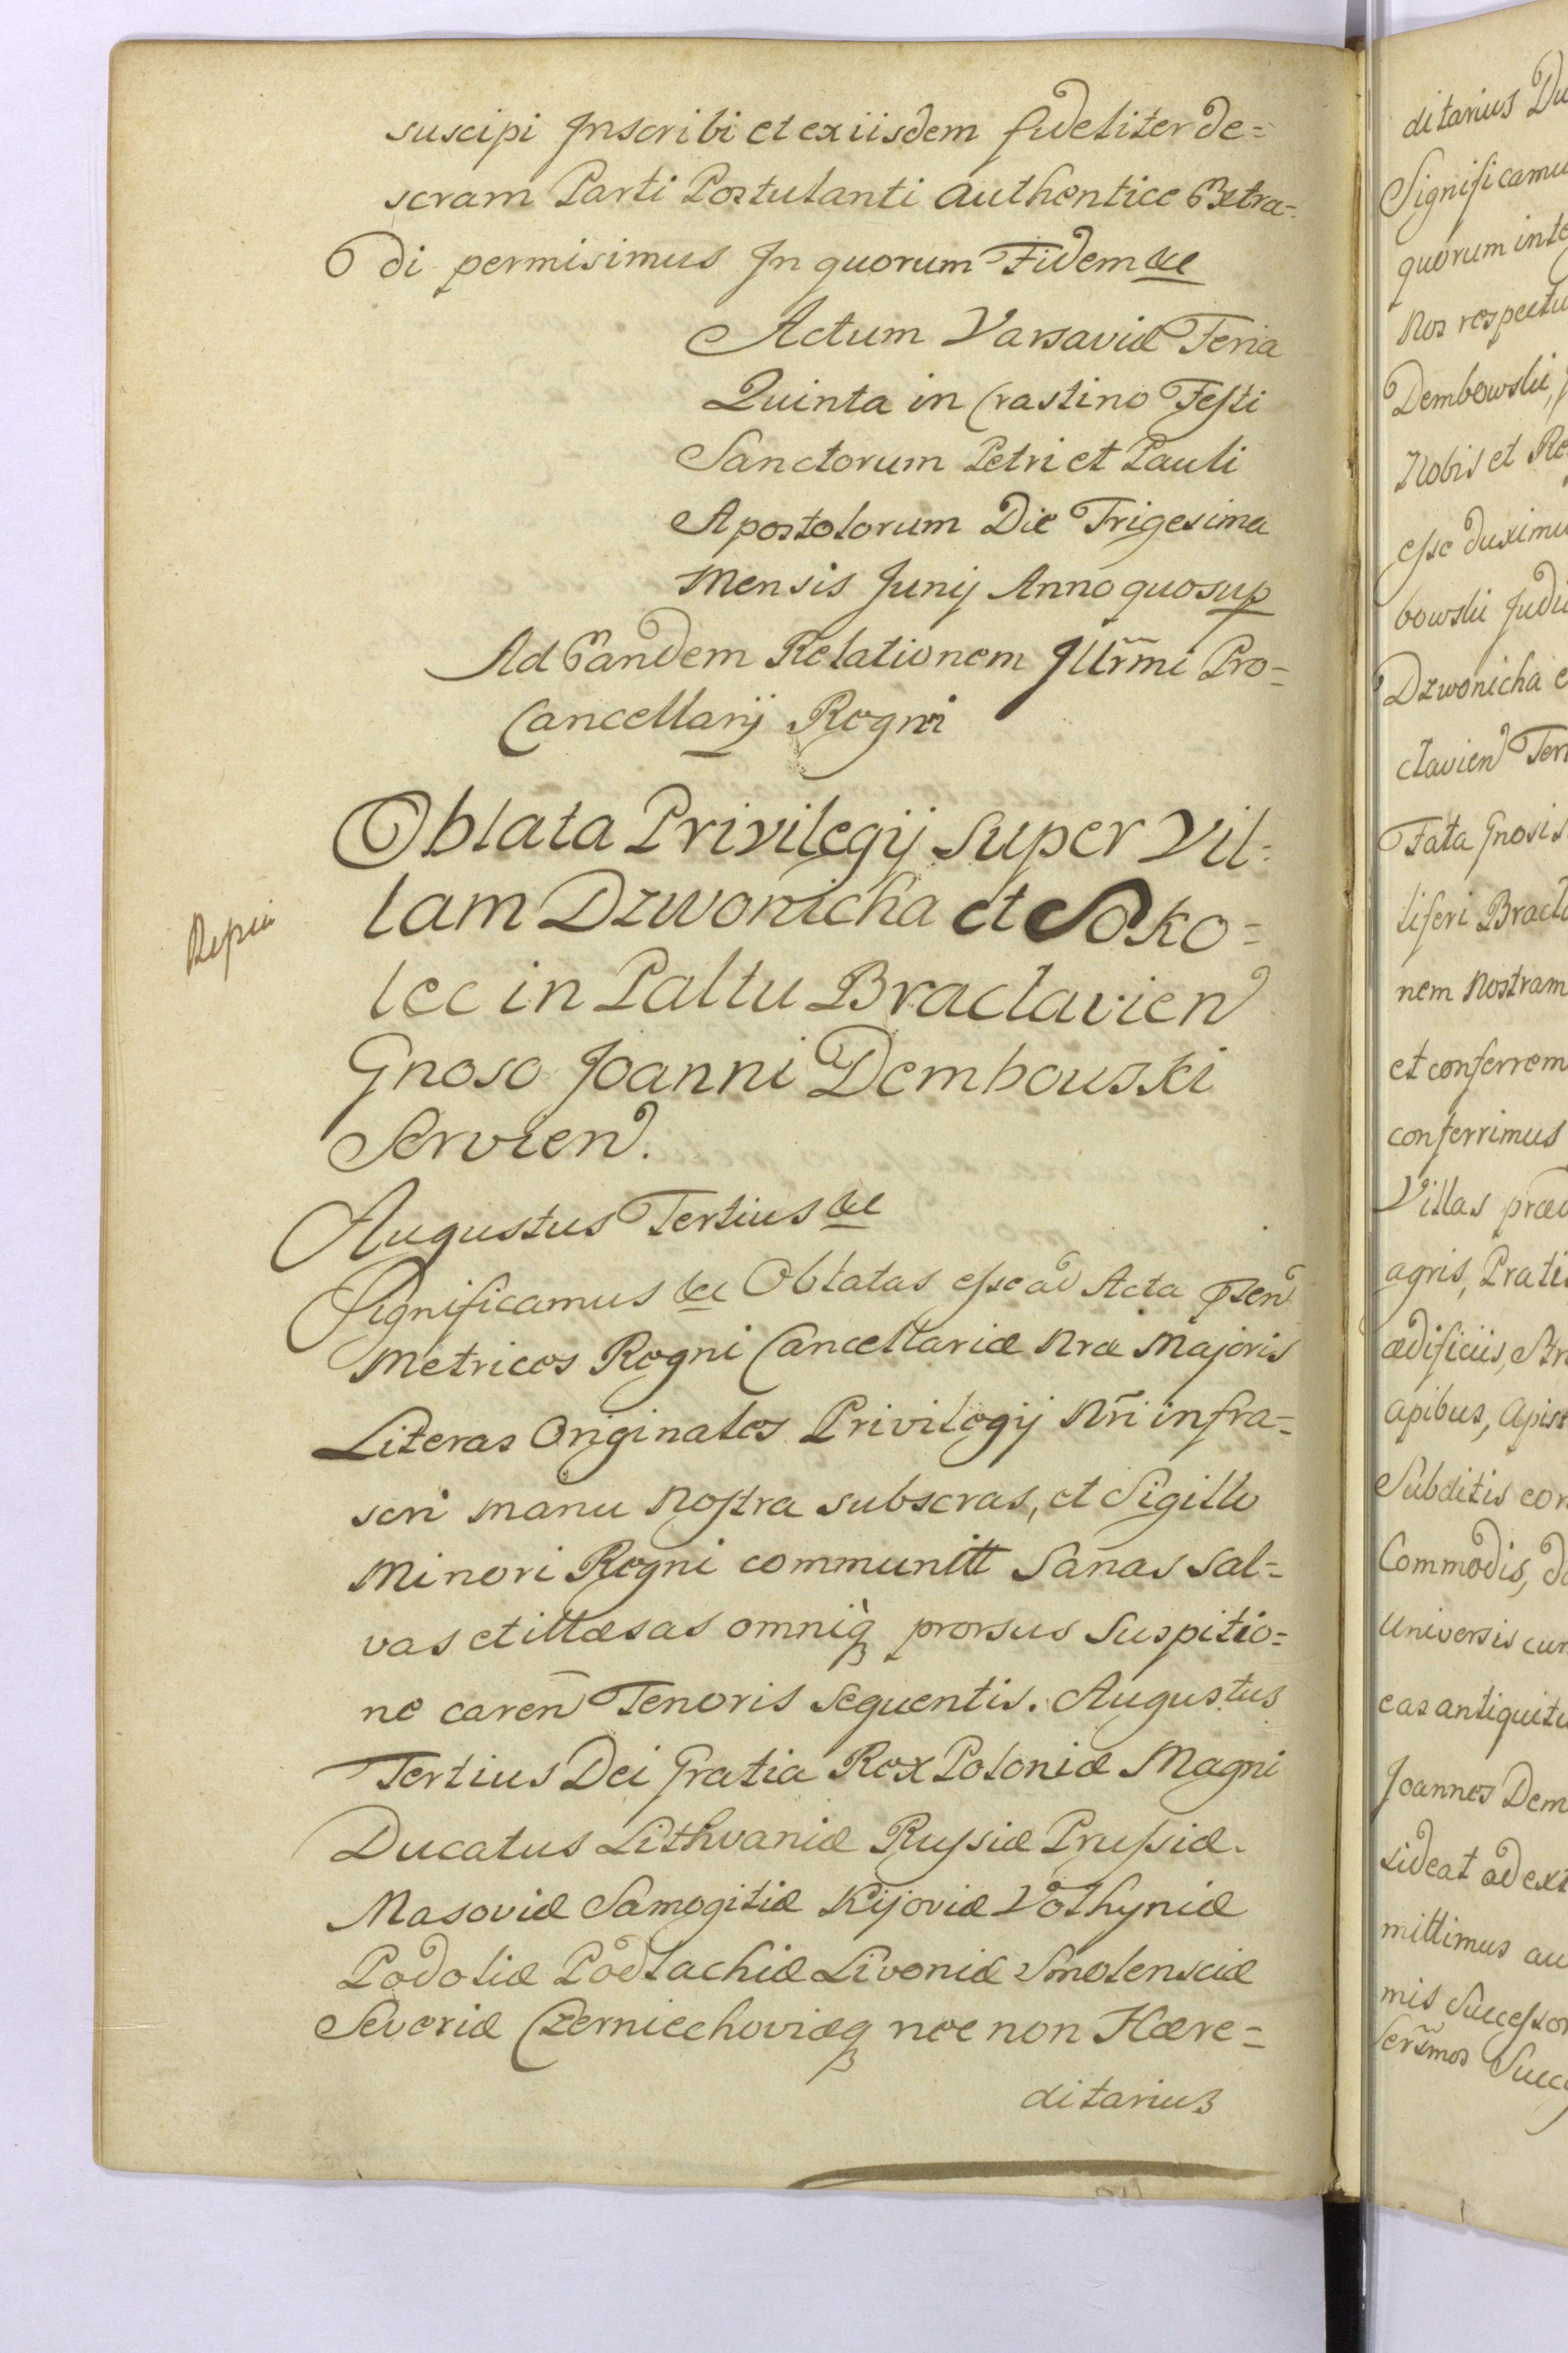 suscipi Inscribi et ex iisdem fideliter de=
scram Parti Postulanti authentice Extra=
di permisimus In quorum Fidem &c
Actum Varsaviæ Feria
Quinta in Crastino Festi
Sanctorum Petri et Pauli
Apostolorum Die Trigesima
Mensis Junij Anno quo sup
Ad Eandem Relationem Illr̃mi Pro=
Cancellarij Regni
Oblata Privilegij super Vil=
lam Dzwonicha et Soko=
lec in Paltu Braclavien
Gnoso Joanni Dembowski
Servien.
Augustus Tertius &c
Significamus &c Oblatas esse ad Acta
Metrices Regni Cancellariæ Nræ Majoris
Literas Originales Privilegij Nr̃i infra=
scri manu Nostra subscras, et Sigillo
Minori Regni communitt Sanas sal=
vas et illæsas omniq prorsus Suspitio=
ne caren Tenoris sequentis. Augustus
Tertius Dei Gratia Rex Poloniæ Magni
Ducatus Lithvaniæ Russiæ Prussiæ
Masoviæ Samogitiæ Kijoviæ Volhyniæ
Podoliæ Podlachiæ Livoniæ Smolensciæ
Severiæ Czerniechoviæq nec non Hære=
ditarius
ditarius
Significamus
quorum
Nos respectu
Dembowski,
Nobis et
esse duximus
bowski
Dzwonicha
clavien
Fata Gnosis
liferi
nem Nostram
et conferrem
conferrimus
Villas
agris,
ædificiis,
apibus,
Subditis
Commodis,
Universis
eas
Joannes
sideat ad
mittimus
mis
Sers̃mos